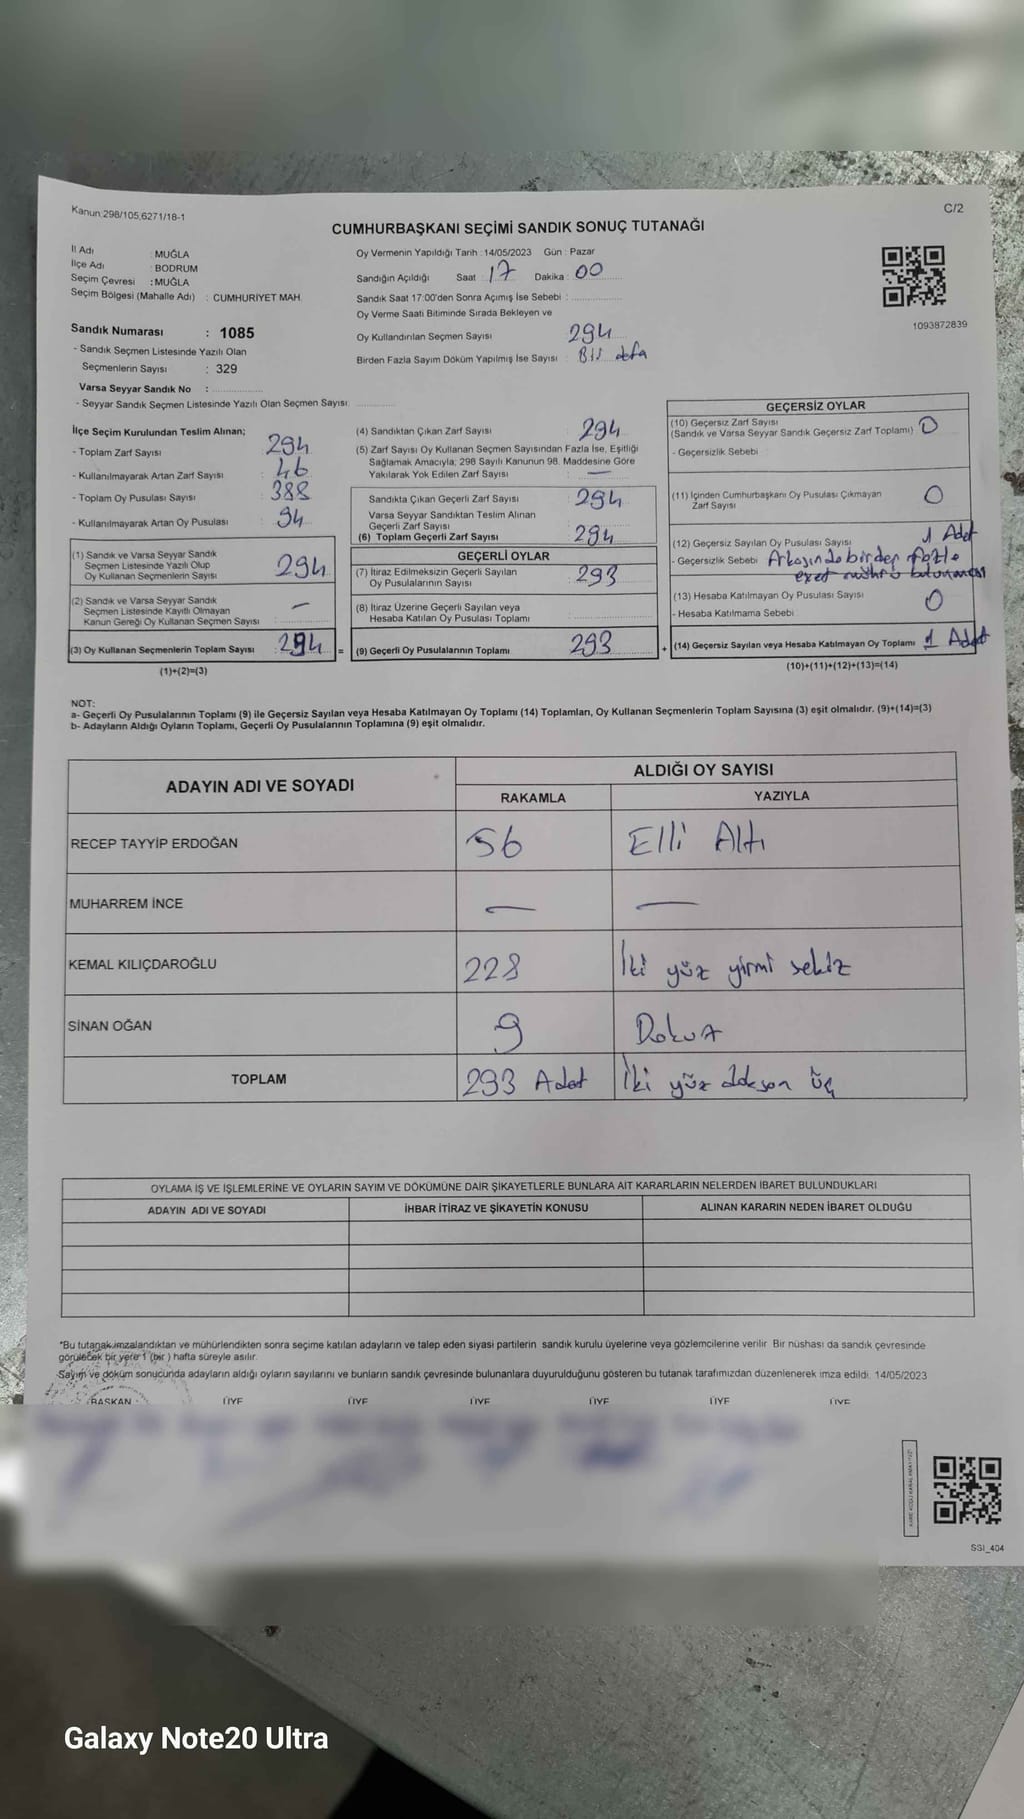 Kanun:298/105,6271/18-1
C/2
CUMHURBAŞKANI SEÇİMİ SANDIK SONUÇ TUTANAĞI
İl Adı : MUĞLA
İlçe Adı : BODRUM
Seçim Çevresi : MUĞLA
Seçim Bölgesi (Mahalle Adı) : CUMHURİYET MAH.
Sandık Numarası : 1085
- Sandık Seçmen Listesinde Yazılı Olan
Seçmenlerin Sayısı : 329
Varsa Seyyar Sandık No :
- Seyyar Sandık Seçmen Listesinde Yazılı Olan Seçmen Sayısı:
Oy Vermenin Yapıldığı Tarih : 14/05/2023 Gün : Pazar
Sandığın Açıldığı Saat : 17 Dakika : 00
Sandık Saat 17:00'den Sonra Açımış İse Sebebi :
Oy Verme Saati Bitiminde Sırada Bekleyen ve
Oy Kullandırılan Seçmen Sayısı 294
Birden Fazla Sayım Döküm Yapılmış İse Sayısı : Bir defa
1093872839
İlçe Seçim Kurulundan Teslim Alınan;
- Toplam Zarf Sayısı : 294
- Kullanılmayarak Artan Zarf Sayısı : 46
- Toplam Oy Pusulası Sayısı : 388
- Kullanılmayarak Artan Oy Pusulası : 94
(1) Sandık ve Varsa Seyyar Sandık
Seçmen Listesinde Yazılı Olup
Oy Kullanan Seçmenlerin Sayısı : 294
(2) Sandık ve Varsa Seyyar Sandık
Seçmen Listesinde Kayıtlı Olmayan
Kanun Gereği Oy Kullanan Seçmen Sayısı : —
(3) Oy Kullanan Seçmenlerin Toplam Sayısı : 294 =
(1)+(2)=(3)
(4) Sandıktan Çıkan Zarf Sayısı : 294
(5) Zarf Sayısı Oy Kullanan Seçmen Sayısından Fazla İse, Eşitliği
Sağlamak Amacıyla; 298 Sayılı Kanunun 98. Maddesine Göre
Yakılarak Yok Edilen Zarf Sayısı : —
Sandıkta Çıkan Geçerli Zarf Sayısı : 294
Varsa Seyyar Sandıktan Teslim Alınan
Geçerli Zarf Sayısı :
(6) Toplam Geçerli Zarf Sayısı : 294
GEÇERLİ OYLAR
(7) İtiraz Edilmeksizin Geçerli Sayılan
Oy Pusulalarının Sayısı : 293
(8) İtiraz Üzerine Geçerli Sayılan veya
Hesaba Katılan Oy Pusulası Toplamı :
(9) Geçerli Oy Pusulalarının Toplamı : 293 +
GEÇERSİZ OYLAR
(10) Geçersiz Zarf Sayısı
(Sandık ve Varsa Seyyar Sandık Geçersiz Zarf Toplamı) : 0
- Geçersizlik Sebebi
(11) İçinden Cumhurbaşkanı Oy Pusulası Çıkmayan
Zarf Sayısı 0
(12) Geçersiz Sayılan Oy Pusulası Sayısı 1 Adet
- Geçersizlik Sebebi Arkasında birden fazla
evet mührü bulunması
(13) Hesaba Katılmayan Oy Pusulası Sayısı 0
- Hesaba Katılmama Sebebi
(14) Geçersiz Sayılan veya Hesaba Katılmayan Oy Toplamı : 1 Adet
(10)+(11)+(12)+(13)=(14)
NOT:
a- Geçerli Oy Pusulalarının Toplamı (9) ile Geçersiz Sayılan veya Hesaba Katılmayan Oy Toplamı (14) Toplamları, Oy Kullanan Seçmenlerin Toplam Sayısına (3) eşit olmalıdır. (9)+(14)=(3)
b- Adayların Aldığı Oyların Toplamı, Geçerli Oy Pusulalarının Toplamına (9) eşit olmalıdır.
ADAYIN ADI VE SOYADI
ALDIĞI OY SAYISI
RAKAMLA YAZIYLA
RECEP TAYYİP ERDOĞAN 56 Elli Altı
MUHARREM İNCE — —
KEMAL KILIÇDAROĞLU 228 İki yüz yirmi sekiz
SİNAN OĞAN 9 Dokuz
TOPLAM 293 Adet İki yüz doksan üç
OYLAMA İŞ VE İŞLEMLERİNE VE OYLARIN SAYIM VE DÖKÜMÜNE DAİR ŞİKAYETLERLE BUNLARA AİT KARARLARIN NELERDEN İBARET BULUNDUKLARI
ADAYIN ADI VE SOYADI İHBAR İTİRAZ VE ŞİKAYETİN KONUSU ALINAN KARARIN NEDEN İBARET OLDUĞU
*Bu tutanak imzalandıktan ve mühürlendikten sonra seçime katılan adayların ve talep eden siyasi partilerin sandık kurulu üyelerine veya gözlemcilerine verilir. Bir nüshası da sandık çevresinde
görülecek bir yere 1 (bir ) hafta süreyle asılır.
-Sayım ve döküm sonucunda adayların aldığı oyların sayılarını ve bunların sandık çevresinde bulunanlara duyurulduğunu gösteren bu tutanak tarafımızdan düzenlenerek imza edildi. 14/05/2023
BAŞKAN ÜYE ÜYE ÜYE ÜYE ÜYE ÜYE
SSI_404
Galaxy Note20 Ultra